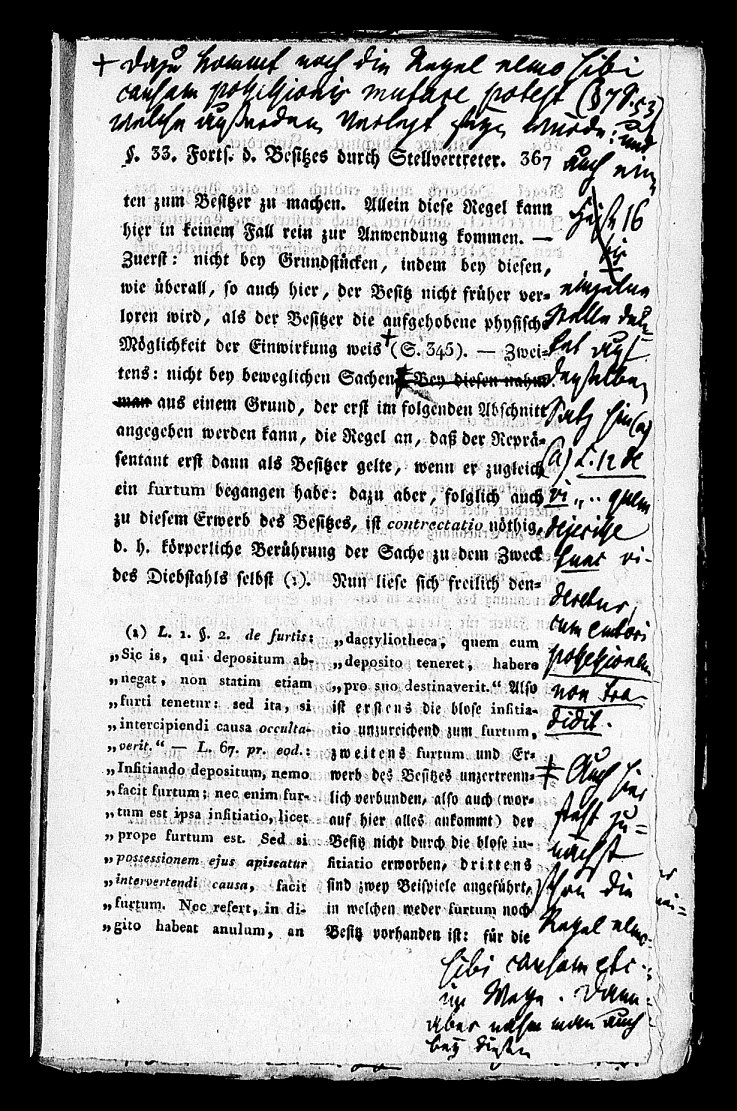 + Dazu kommt noch die Regel nemo sibi
causam possessionis mutare potest (§ 7 S. 53)
welche außerdem verletzt seyn würde: und
§. 33. Forts. d. Besitzes durch Stellvertreter. 367
ten zum Besitzer zu machen. Allein diese Regel kann
hier in keinem Fall rein zur Anwendung kommen. —
Zuerst: nicht bey Grundstücken, indem bey diesen,
wie überall, so auch hier, der Besitz nicht früher ver-
loren wird, als der Besitzer die aufgehobene physische
Möglichkeit der Einwirkung weis + (S. 345). — Zwei-
tens: nicht bey beweglichen Sachen ‡ Bey diesen nahm
man aus einem Grund, der erst im folgenden Abschnitt
angegeben werden kann, die Regel an, daß der Reprä-
sentant erst dann als Besitzer gelte, wenn er zugleich
ein furtum begangen habe: dazu aber, folglich auch
zu diesem Erwerb des Besitzes, ist contrectatio nöthig,
d. h. körperliche Berührung der Sache zu dem Zweck
des Diebstahls selbst (1). Nun liese sich freilich den-
(1) L. 1. §. 2. de furtis:
„Sic is, qui depositum ab-
„negat, non statim etiam
„furti tenetur: sed ita, si
„intercipiendi causa occulta-
„verit.“ — L. 67. pr. eod.:
„Infitiando depositum, nemo
„facit furtum; nec enim fur-
„tum est ipsa infitiatio, licet
„prope furtum est. Sed si
„possessionem ejus apiscatur
„intervertendi causa, facit
„furtum. Nec refert, in di-
„gito habeat anulum, an
„dactyliotheca, quem cum
„deposito teneret, habere
„pro suo destinaverit.“ Also
ist erstens die blose infitia-
tio unzureichend zum furtum,
zweitens furtum und Er-
werb des Besitzes unzertrenn-
lich verbunden, also auch (wor-
auf hier alles ankommt) der
Besitz nicht durch die blose in-
fitiatio erworben, drittens
sind zwey Beispiele angeführt,
in welchen weder furtum noch
Besitz vorhanden ist: für die
auch ein
einzelne
Stelle deu-
tet auf
denselben
Satz hin (a)
(a) L. 12 de
vi „.. quem
dejecisse
tunc vi-
deretur,
cum emtori
possessionem
non tra-
didit.
‡ Auch hier
steht zu-
nächst
schon die
Regel nemo
sibi causam etc.
im Wege. Dann
aber nahm man auch
bey diesen